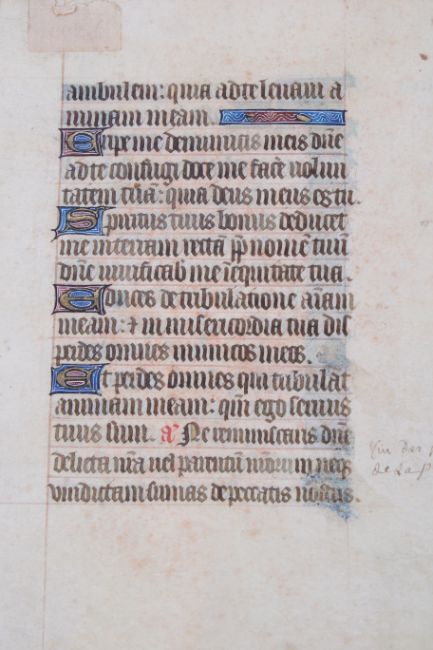 ambulem: quia ad te leuaui a
nimam meam.
Eripe me de inimicis meis dñe
ad te confugi doce me facere uolun
tatem tuã: quia deus meus es tu.
Spiritus tuus bonus deducet
me in terram rectã ꝓp nomẽ tuũ
dñe uiuificab' me ĩ equitate tua.
Educes de tribulatione aĩam
meam: ⁊ in misericordia tua dis
perdes omnes inimicos meos.
Et perdes omnes qui tribulãt
animam meam: qm̃ ego seruus
tuus sum. añ Ne reminiscaris dñe
delicta nr̃a uel parentũ nr̃orum neqꝫ
vindictam sumas de peccatis nostris.